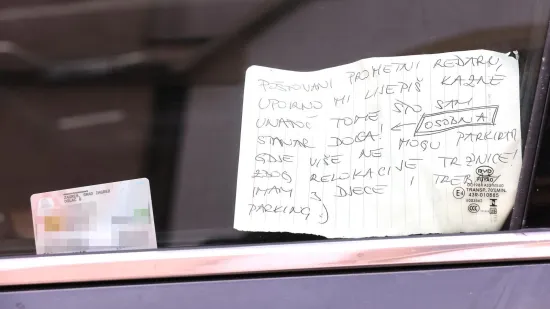 POŠTOVANI PROMETNI REDARU,
UPORNO MI LIJEPIŠ KAZNE
UNATOČ TOME ŠTO SAM
STANAR DOCA! ← OSOBNA!
GDJE VIŠE NE MOGU PARKIRATI
ZBOG RELOKACIJE TRŽNICE!
IMAM 3 DJECE I TREBAM
PARKING :)
TRANSP. TEMPERED